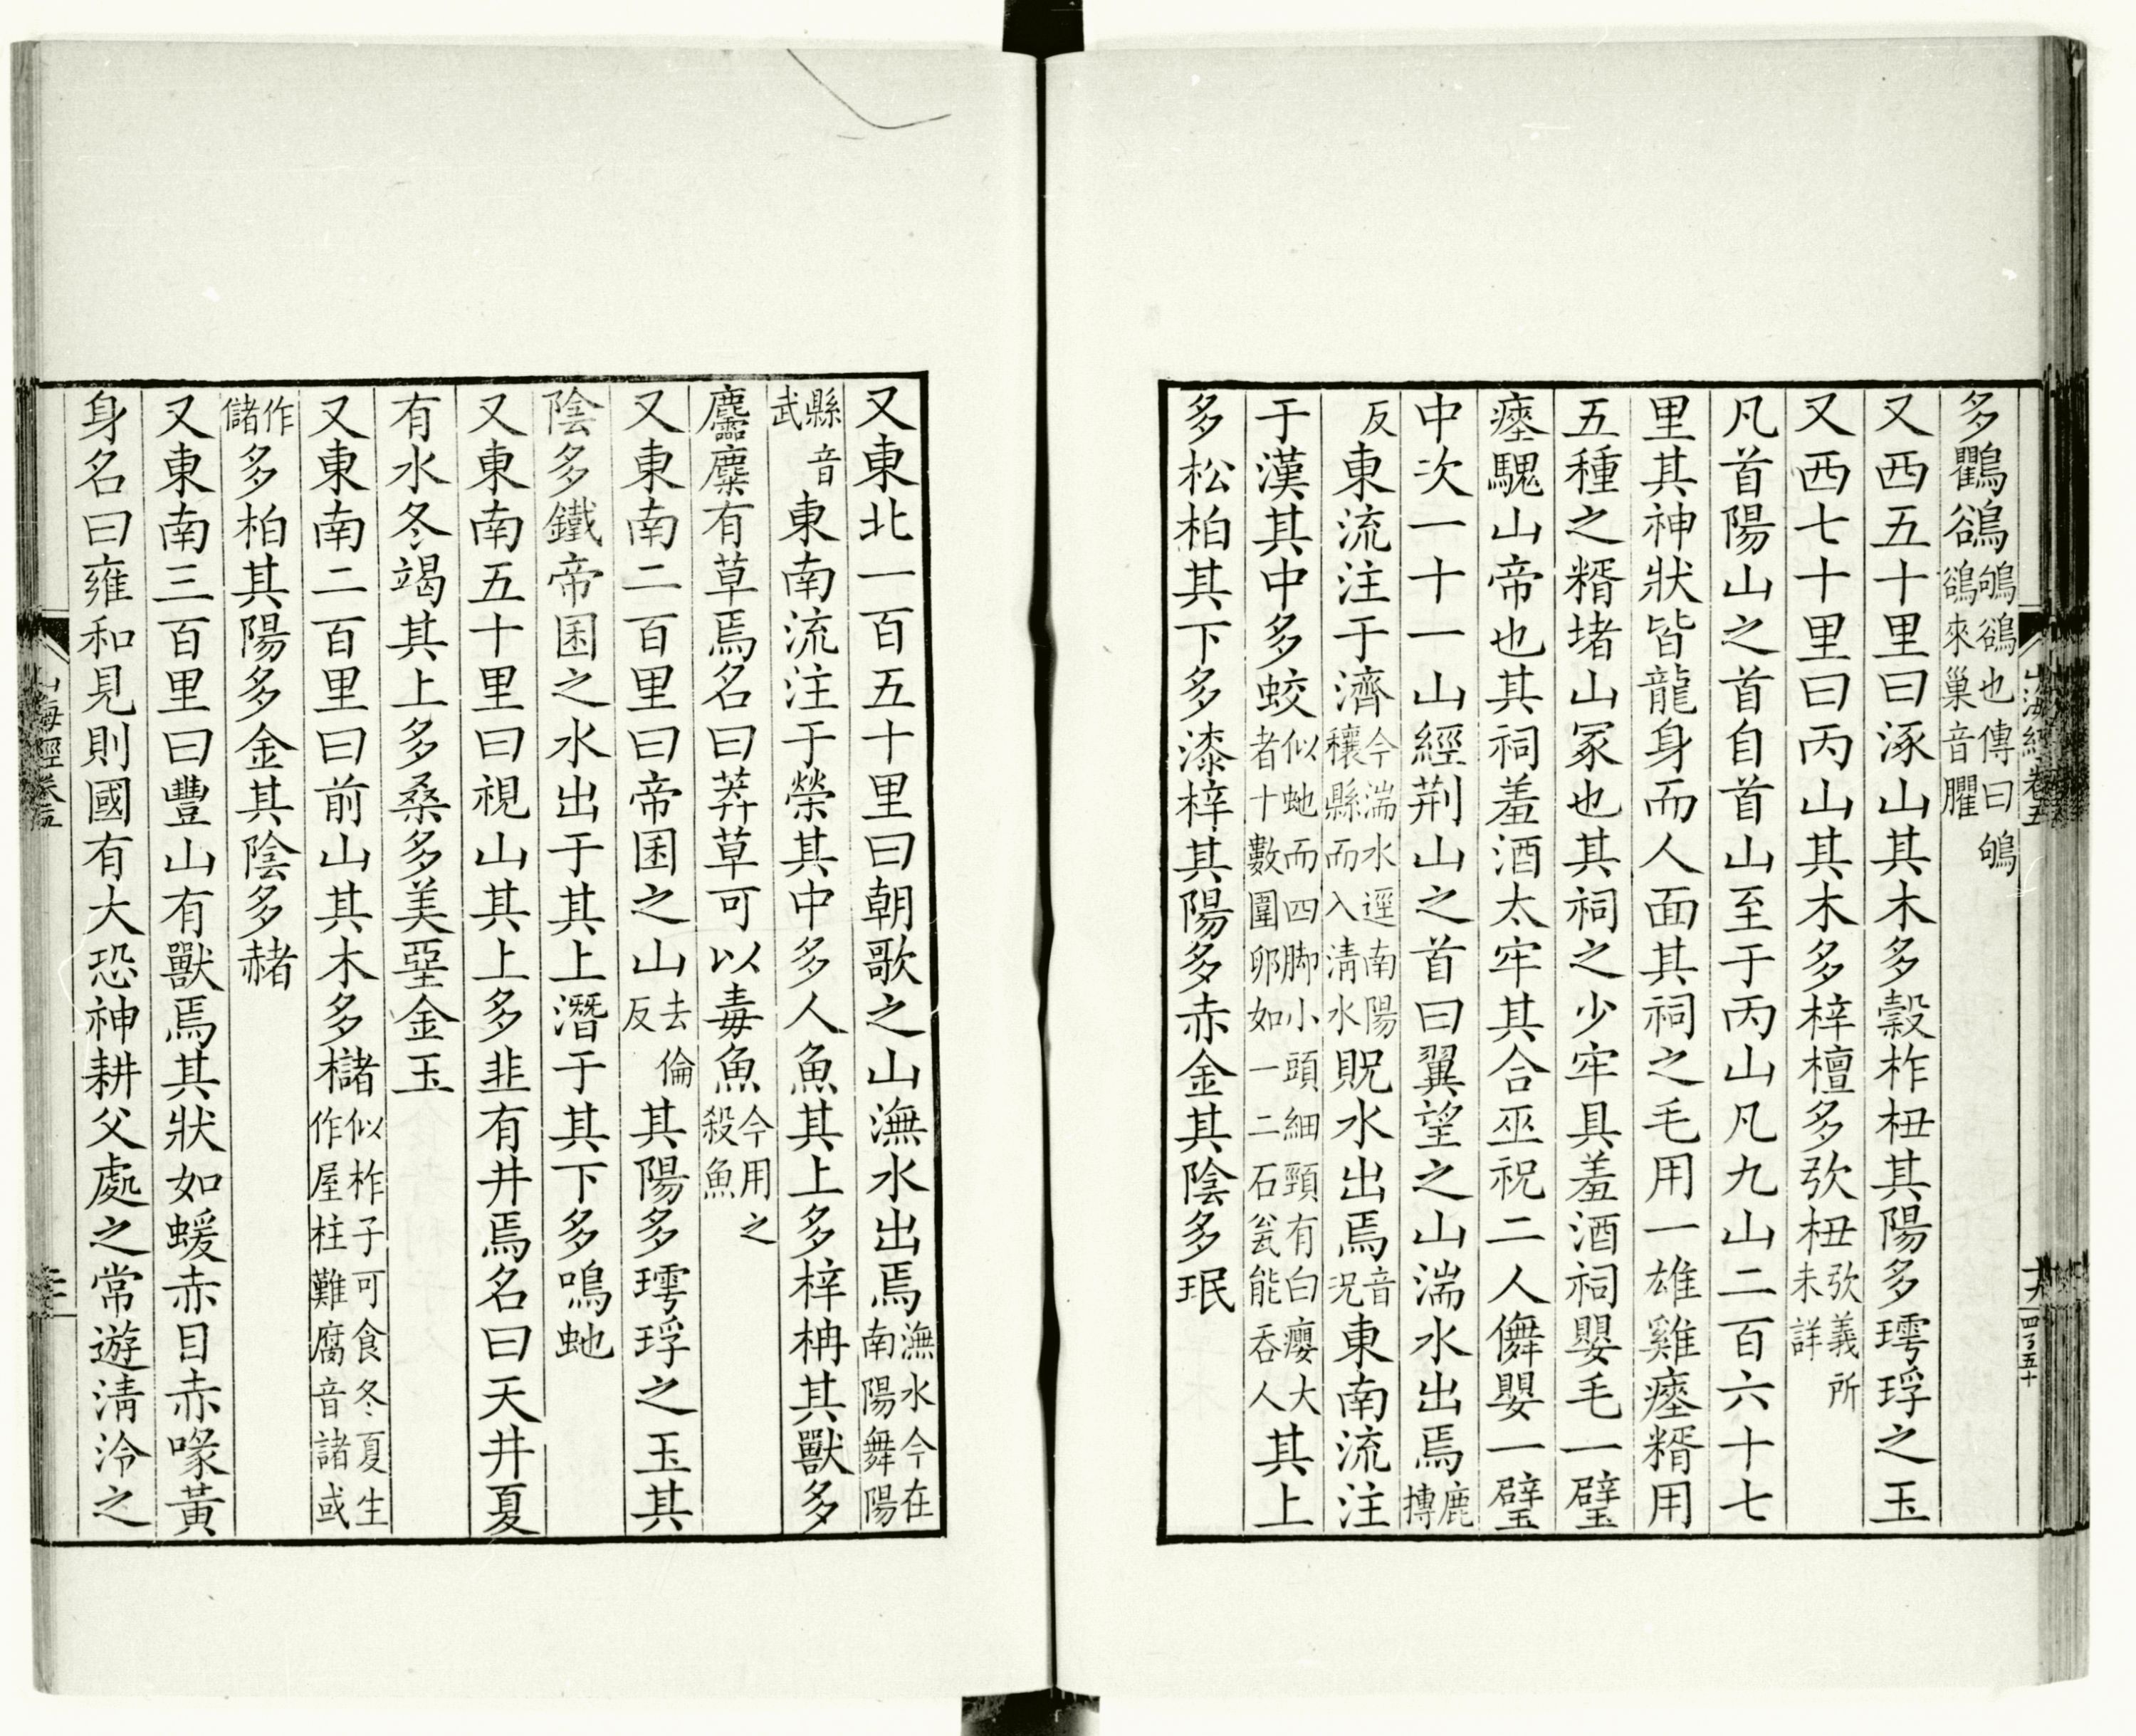 多鸜鵒鴝鵒也傳曰鴝鵒來巢音臞
又西五十里曰涿山其木多榖柞杻其陽多㻬琈之玉
又西七十里曰丙山其木多梓檀多弞杻弞義所未詳
凡首陽山之首自首山至于丙山凡九山二百六十七
里其神狀皆龍身而人面其祠之毛用一雄雞瘞糈用
五種之糈堵山冢也其祠之少牢具羞酒祠嬰毛一璧
瘞騩山帝也其祠羞酒太牢其合巫祝二人儛嬰一璧
中次一十一山經荆山之首曰翼望之山湍水出焉鹿摶
反東流注于濟今湍水逕南陽穰縣而入清水貺水出焉音況東南流注
于漢其中多蛟似虵而四脚小頭細頸有白癭大者十數圍卵如一二石瓮能吞人其上
多松柏其下多漆梓其陽多赤金其陰多珉
山海經卷五
又東北一百五十里曰朝歌之山潕水出焉潕水今在南陽舞陽
縣音武東南流注于滎其中多人魚其上多梓柟其獸多
麢麋有草焉名曰莽草可以毒魚今用之殺魚
又東南二百里曰帝囷之山去倫反其陽多㻬琈之玉其
陰多鐵帝囷之水出于其上潛于其下多鳴虵
又東南五十里曰視山其上多韭有井焉名曰天井夏
有水冬竭其上多桑多美堊金玉
又東南二百里曰前山其木多櫧似柞子可食冬夏生作屋柱難腐音諸或
作儲多柏其陽多金其陰多赭
又東南三百里曰豐山有獸焉其狀如蝯赤目赤喙黃
身名曰雍和見則國有大恐神耕父處之常遊淸泠之
山海經卷五